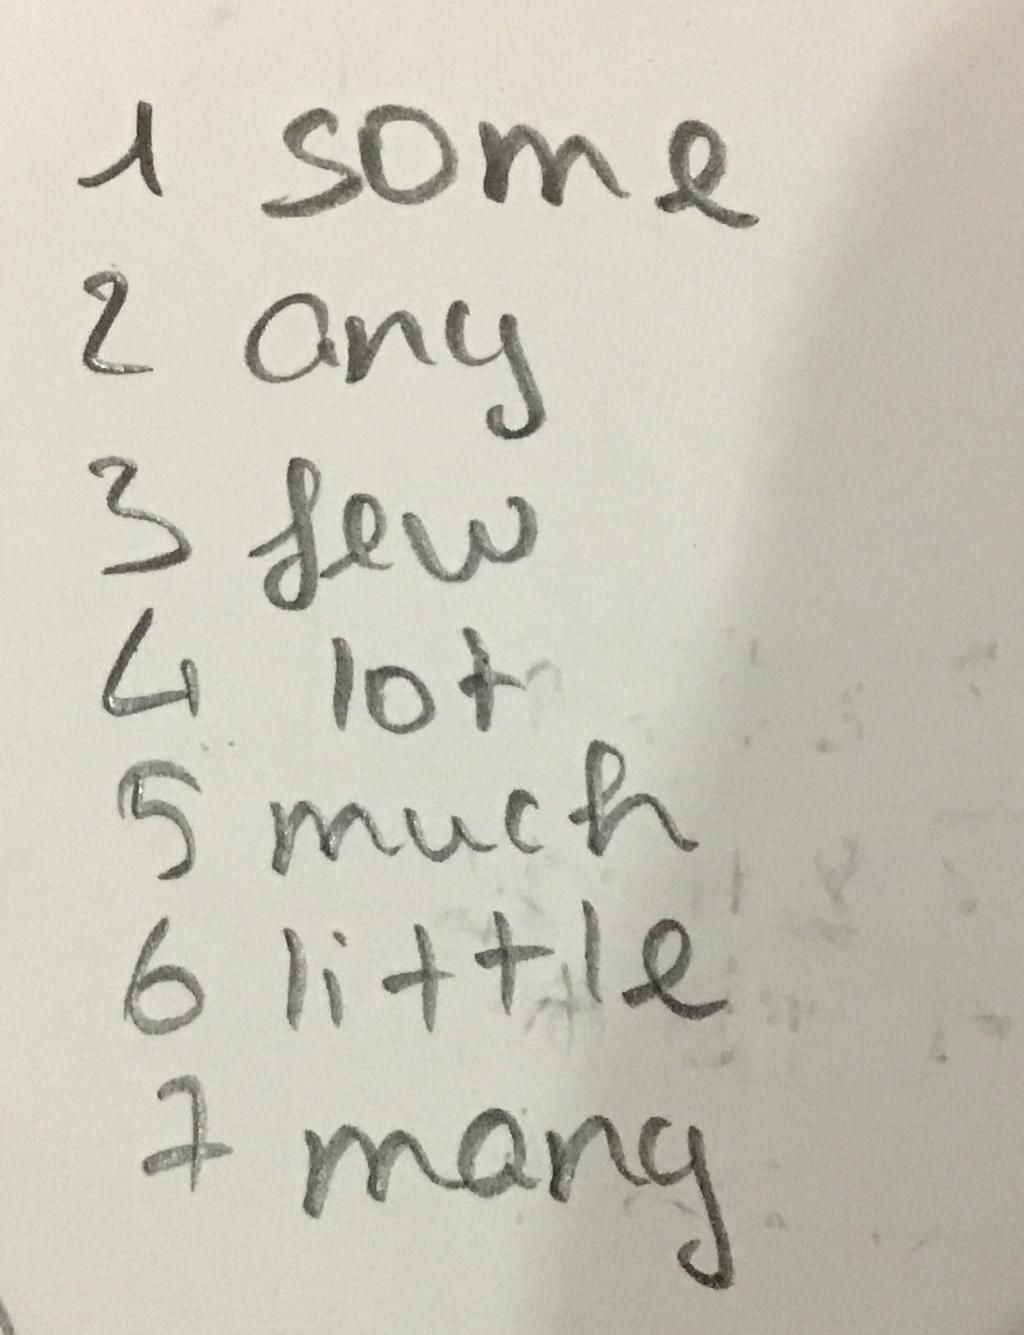 1 some
2 any
3 few
4 lot
5 much
6 little
7 many